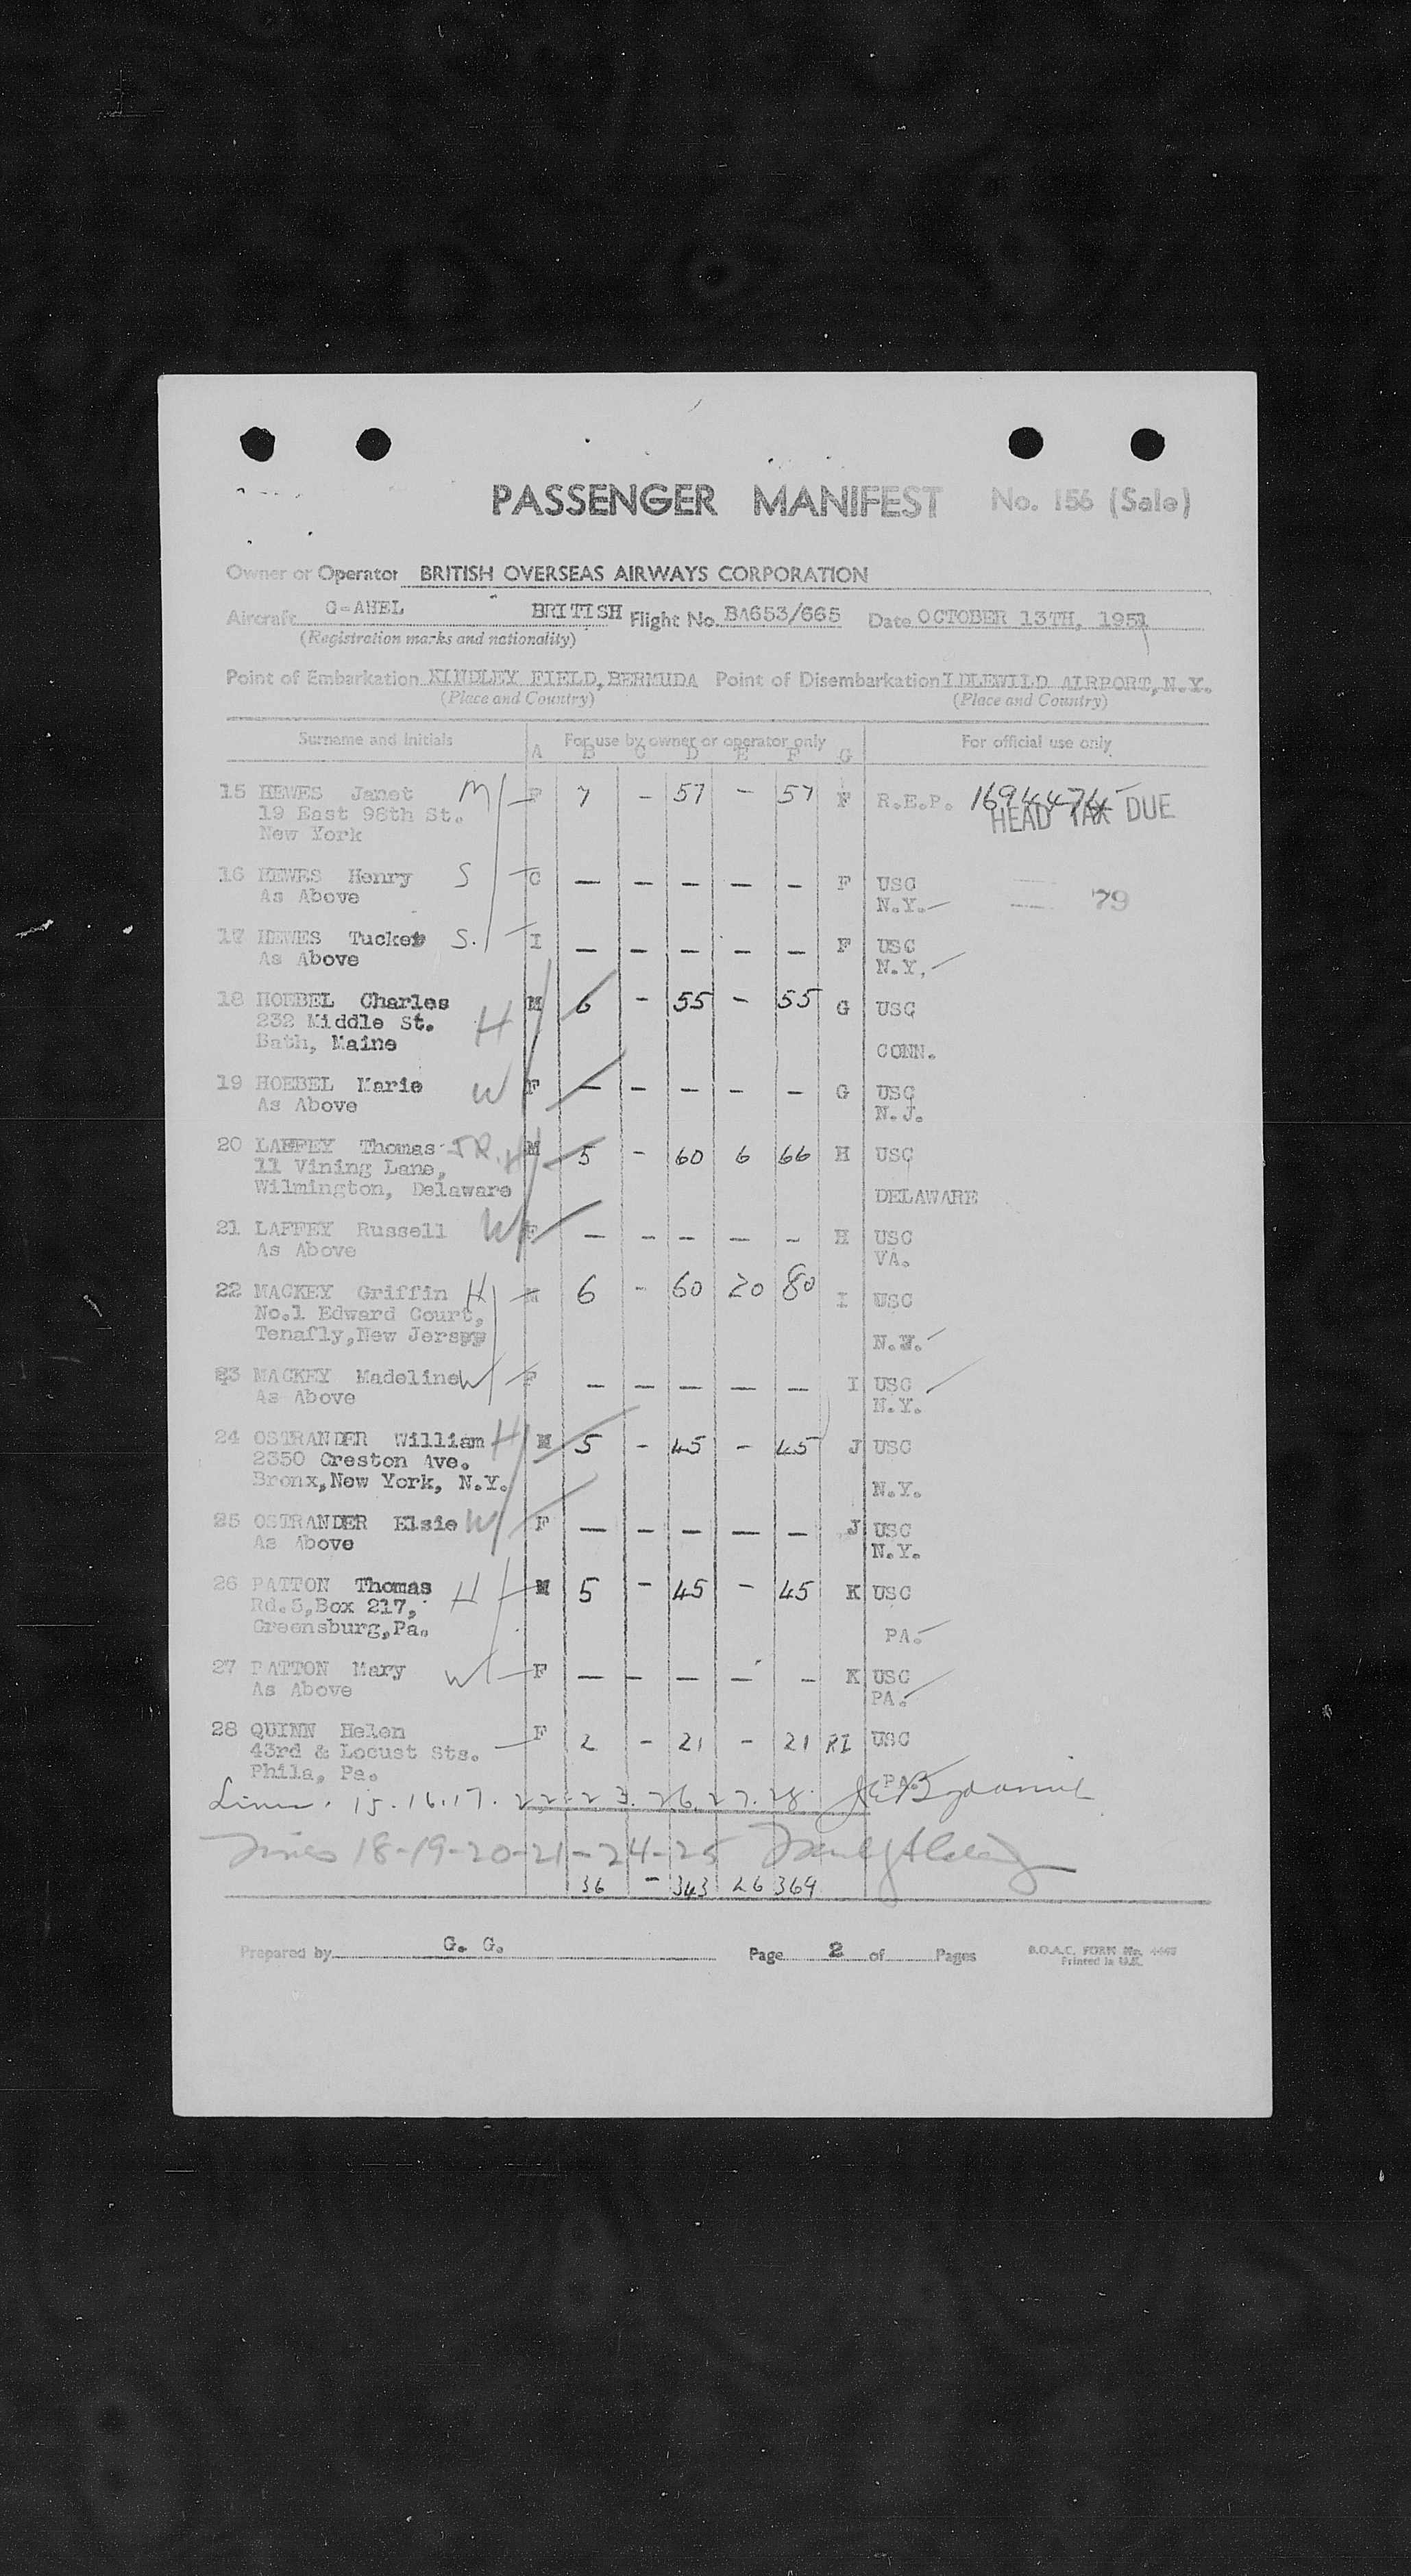 PASSENGER MANIFEST No. 156 (Sale)
Owner or Operator BRITISH OVERSEAS AIRWAYS CORPORATION
Aircraft G-AHEL BRITISH Flight No. BA653/665 Date OCTOBER 13TH, 1951
(Registration marks and nationality)
Point of Embarkation KINDLEY FIELD, BERMUDA Point of Disembarkation IDLEWILD AIRPORT, N.Y.
(Place and Country) (Place and Country)
Surname and Initials For use by owner or operator only For official use only
A B C D E F G
15 HEWES Janet M F 7 - 57 - 57 F R.E.P. 1694474
19 East 98th St. HEAD TAX DUE
New York
16 HEWES Henry S C — — — — — F USC
As Above N.Y. 79
17 HEWES Tucker S. I — — — — — F USC
As Above N.Y.
18 HOEBEL Charles H M 6 - 55 - 55 G USC
232 Middle St.
Bath, Maine CONN.
19 HOEBEL Marie W F — — — — — G USC
As Above N.J.
20 LAFFEY Thomas JR. H M 5 - 60 6 66 H USC
11 Vining Lane,
Wilmington, Delaware DELAWARE
21 LAFFEY Russell W F — — — — — H USC
As Above VA.
22 MACKEY Griffin H M 6 - 60 20 80 I USC
No.1 Edward Court,
Tenafly, New Jersey
23 MACKEY Madeline W F — — — — — I USC
As Above N.Y.
24 OSTRANDER William H M 5 - 45 - 45 J USC
2350 Creston Ave.
Bronx, New York, N.Y. N.Y.
25 OSTRANDER Elsie W F — — — — — J USC
As Above N.Y.
26 PATTON Thomas H M 5 - 45 - 45 K USC
Rd.3, Box 217,
Greensburg, Pa. PA.
27 PATTON Mary W F — — — — — K USC
As Above PA.
28 QUINN Helen F 2 - 21 - 21 RI USC
43rd & Locust Sts.
Phila, Pa. PA.
Lines. 15. 16. 17. 22. 23. 26. 27. 28.
Lines 18-19-20-21-24-25
36 - 343 26 369
Prepared by G. G. Page 2 of Pages B.O.A.C. FORM No.
Printed in U.K.